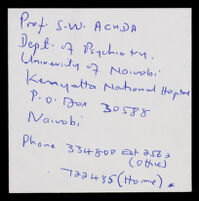 Prof S.W. ACUDA
Dept. of Psychiatry.
University of Nairobi
Kenyatta National Hospital
P.O. Box 30588
Nairobi
Phone 334800 Ext 2562
(Office)
722435 (Home).